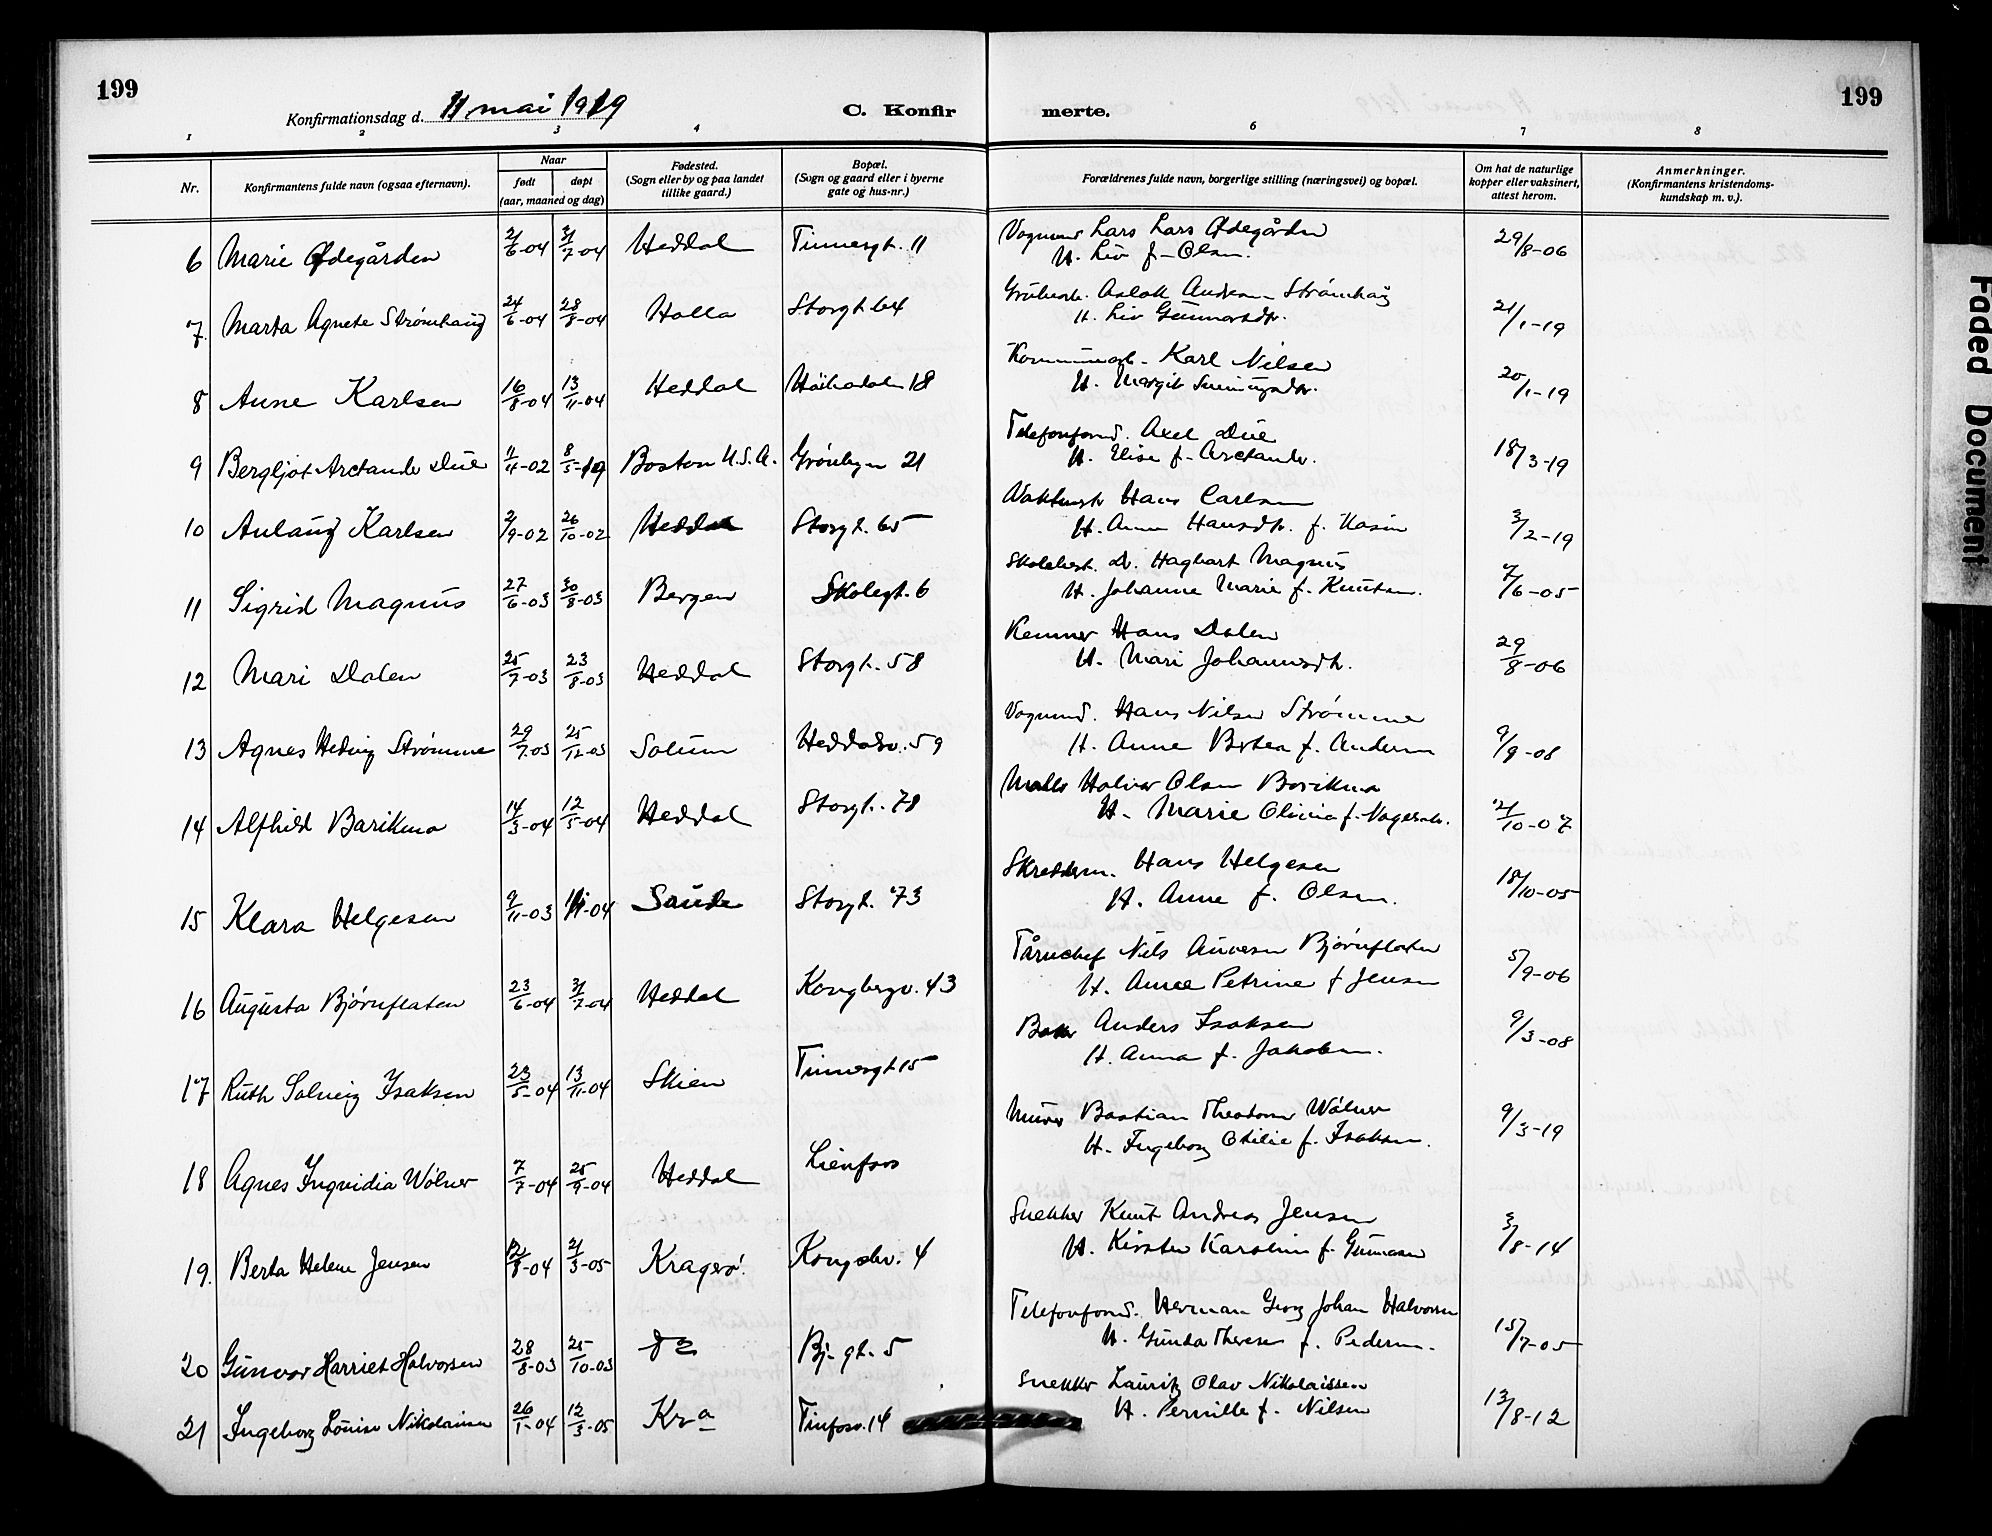 199
199
Konfirmationsdag d. 11 mai 1919
C. Konfir
merte.
1 2 3 4 5 6 7 8
Nr.
Konfirmantens fulde navn (ogsaa efternavn).
Naar
født
døpt
(aar, maaned og dag)
Fødested.
(Sogn eller by og paa landet
tillike gaard.)
Bopæl.
(Sogn og gaard eller i byerne
gate og hus-nr.)
Forældrenes fulde navn, borgerlige stilling (næringsvei) og bopæl.
Om hat de naturlige
kopper eller vaksinert,
attest herom.
Anmerkninger.
(Konfirmantens kristendoms-
kundskap m. v.).
6 Marie Ødegården 2/6-04 31/7-04 Heddal Tinnesgt. 11 Vognmd Lars Lars Ødegården 29/8-06
H. Liv f. Olsen.
7. Marta Agnete Strømhaug 24/6-04 28/8-04 Holla Storgt 64 Grubearb. Aslak Andersen Strømhaug 21/1-19
H. Liv Gunnarsdtr.
8 Anne Karlsen 16/8-04 13/11-04 Heddal 18 Kommunearb. Karl Nilsen 20/1-19
H. Margit
9 Bergljot Arctander Due 4/11-02 8/5-19 Boston U.S.A. Grønbyn 21 Telefonform. Axel Due 18/3-19
H. Elise f. Arctander.
10 Anlaug Karlsen 2/9-02 26/10-02 Heddal Storgt. 65 Vaktmstr Hans Carlsen 3/2-19
H. Anne Hansdtr. f. Kasin
11 Sigrid Magnus 27/6-03 30/8-03 Bergen Skolegt. 6 Skolebest. Dr. Hagbart Magnus 7/6-05
H. Johanne Marie f. Knutsen.
12 Mari Dalen 25/7-03 23/8-03 Heddal Storgt. 58 Kemner Hans Dalen 29/8-06
H. Mari Johannesdtr.
13 Agnes Hedvig Strømme 29/7.03 25/12-03 Solum Heddalsv. 59 Vognmd. Hans Nilsen Strømme 9/9-08
H. Anne Birtea f. Andersen
14 Alfhild Barikmo 14/3-04 12/5-04 Heddal Storgt. 78 Maler Halvor Olsen Borikmo 21/10-07
H. Marie Olivia f.
15 Klara Helgesen 9/11-03 -04 Saude Storgt. 73 Skredderm. Hans Helgesen 18/10-05
H. Anne f. Olsen.
16 Augusta Bjørnflaten 23/6-04 31/7-04 Heddal Kongbergv. 43 Tårnchef Nils Bjørnflaten 5/9-06
H. Anne Petrine f Jensen
17 Ruth Solveig Isaksen 23/5-04 13/11-04 Skien Tinnesgt 15 Baker Anders Isaksen 9/3-08
H. Anna f. Jakobsen.
18 Agnes Ingvidia Wølner 7/7-04 25/9-04 Heddal Lienfoss Murer Bastian Theodor Wølner 9/3-19
H. Ingeborg Otilie f. Isaksen.
19. Berta Helene Jensen /8-04 21/3-05 Kragerø. Kongsbv. 4 Snekker Knut Andreas Jensen 3/8-14
H. Kirsten Karoline f. Gunnarsen
20 Gunvor Harriet Halvorsen 28/8-03 25/10-03 do Bj. gt. 5 Telefonform. Herman Georg Johan Halvorsen 15/7-05
H. Gunda Therese f. Pedersen.
21 Ingeborg Louise Nikolaisen 26/1-04 12/3-05 Kra Tinfosv. 14 Snekker Lauritz Olav Nikolaissen 13/8-12
H. Pernille f. Nilsen
Faded Document